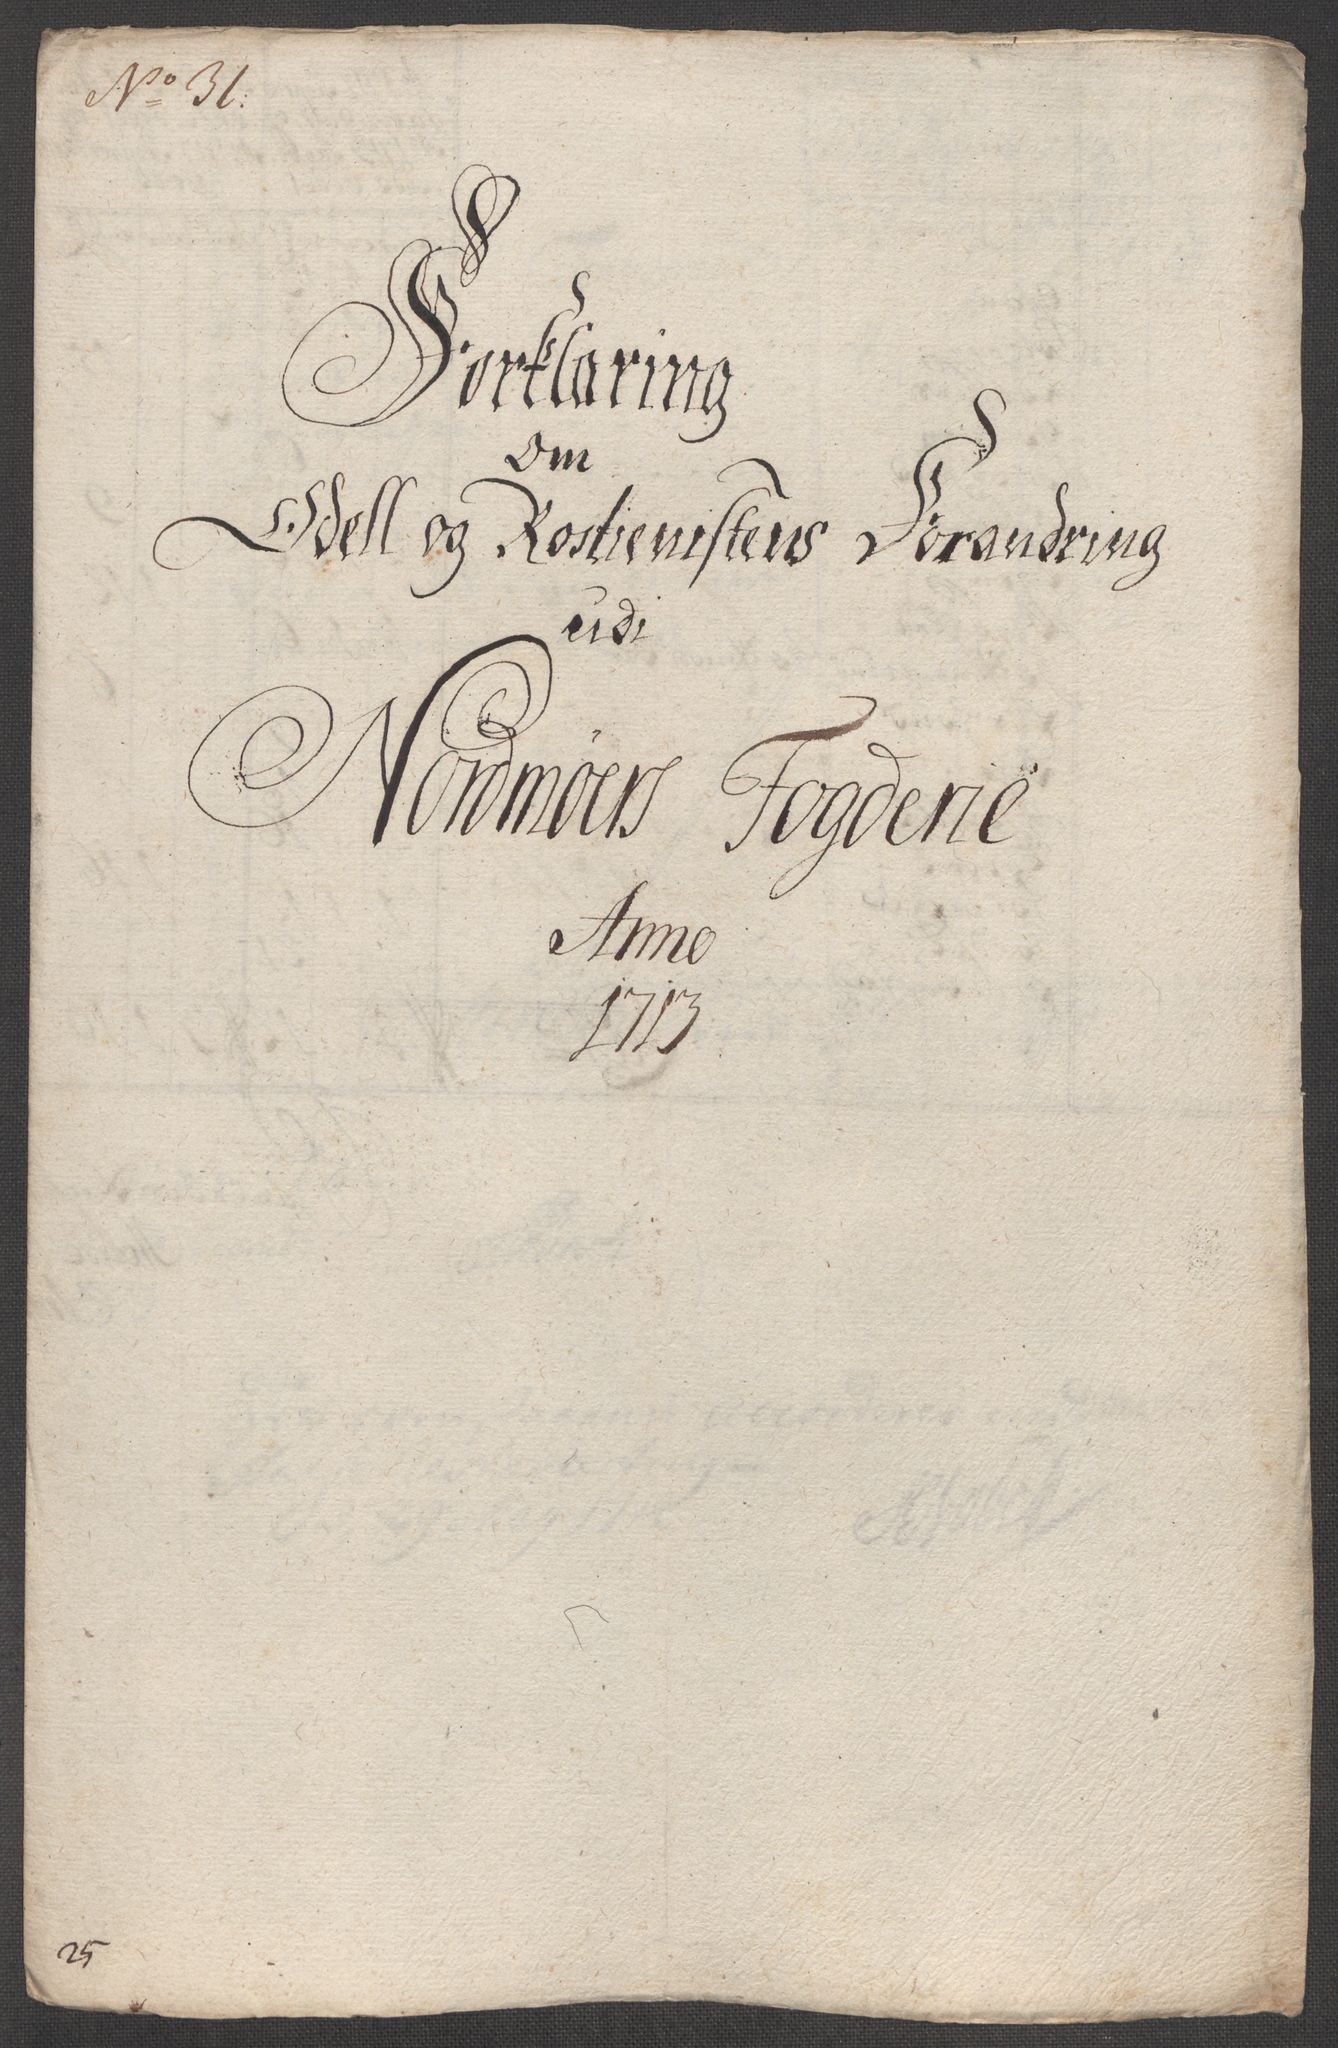 No 31.
Forklaring
om
Odell og Rostienistens Forandring
udi
Nordmøers Fogderie
Anno
1713
25